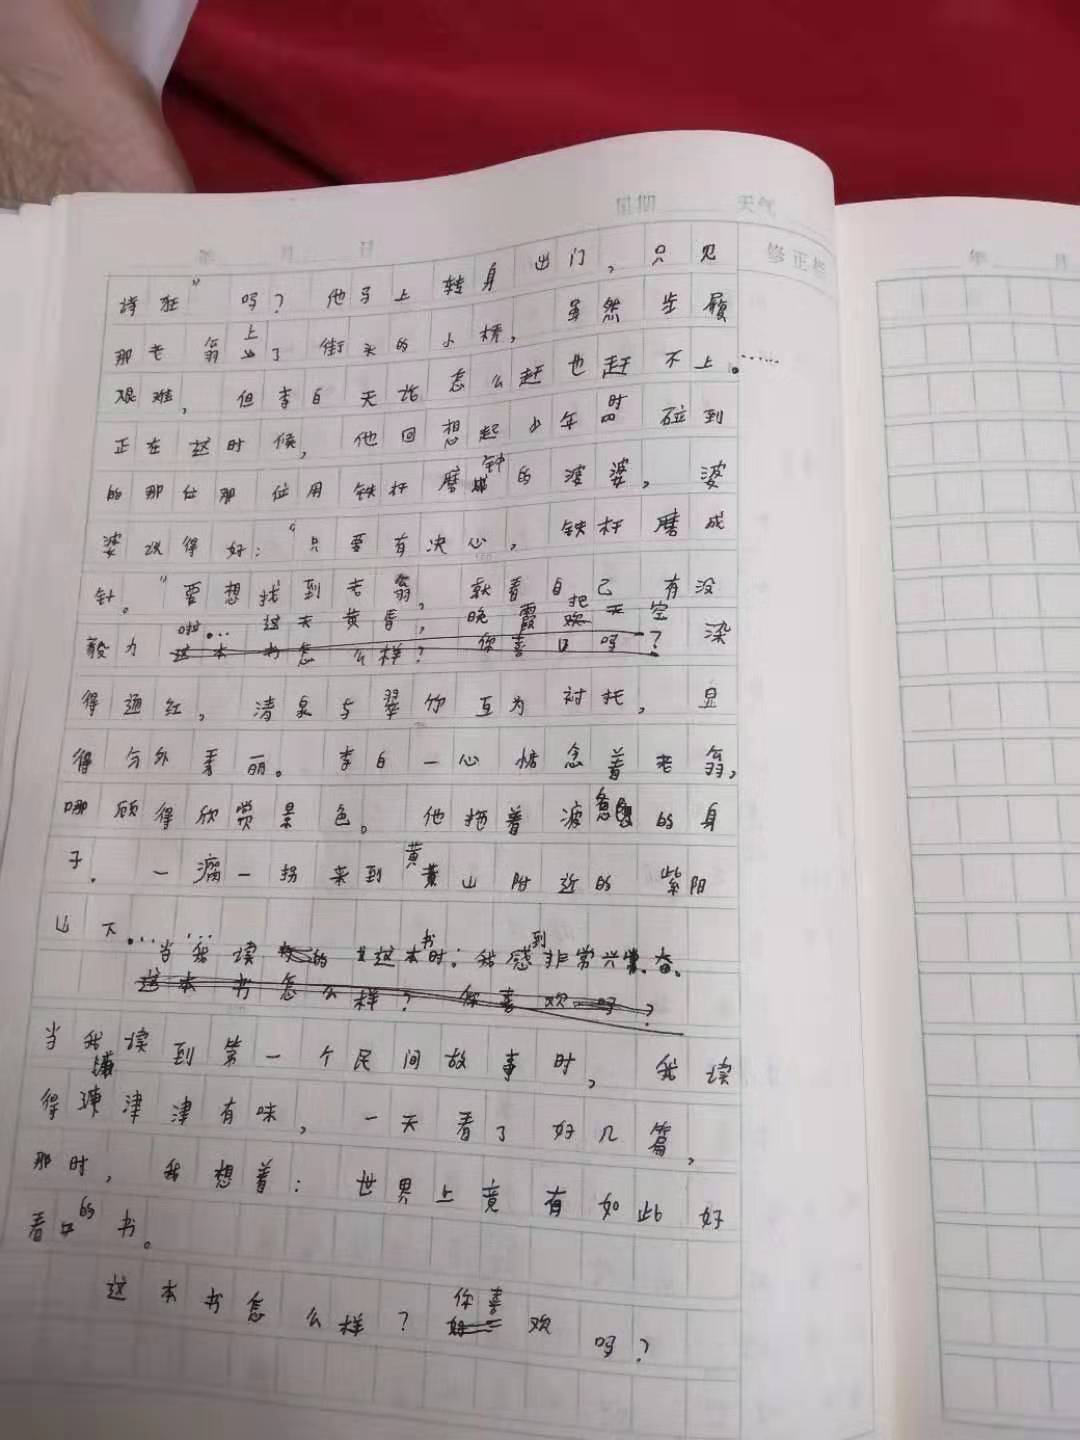 星期 天气
年 月 日
修正栏
年 月
诗狂”吗？他马上转身出门，只见
那老翁上了街头的小桥，虽然步履
艰难，但李白无论怎么赶也赶不上。……
正在这时候，他回想起少年时碰到
的那位那位用铁杆磨针的婆婆，婆
婆说得好：“只要有决心，铁杆磨成
针。”要想找到老翁，就看自己有没
啦… 这天黄昏，晚霞把天空
毅力 这本书怎么样？你喜 吗？染
得通红，清泉与翠竹互为衬托，显
得分外美丽。李白一心惦念着老翁，
哪顾得欣赏景色。他拖着疲惫的身
子．一瘸一拐来到黄山附近的紫阳
山下……
当我读 这本书时：我感到非常兴奋。
这本书怎么样？你喜欢吗？
当我读到第一个民间故事时，我读
得津津有味，一天看了好几篇，
那时，我想着：世界上竟有如此好
看的书。
这本书怎么样？你喜欢吗？